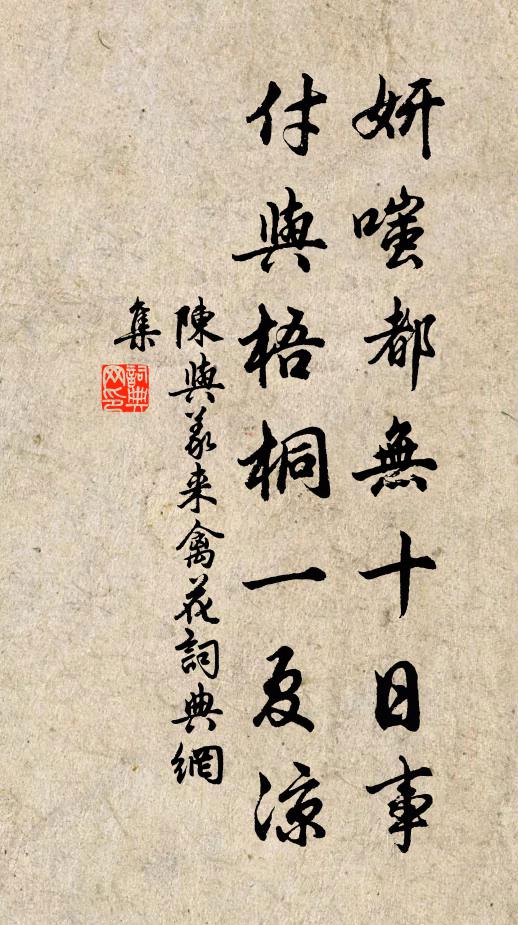 妍嗤都無十日事
付與梧桐一夏涼
陳與義来禽花詞典網
集
詞典
网印